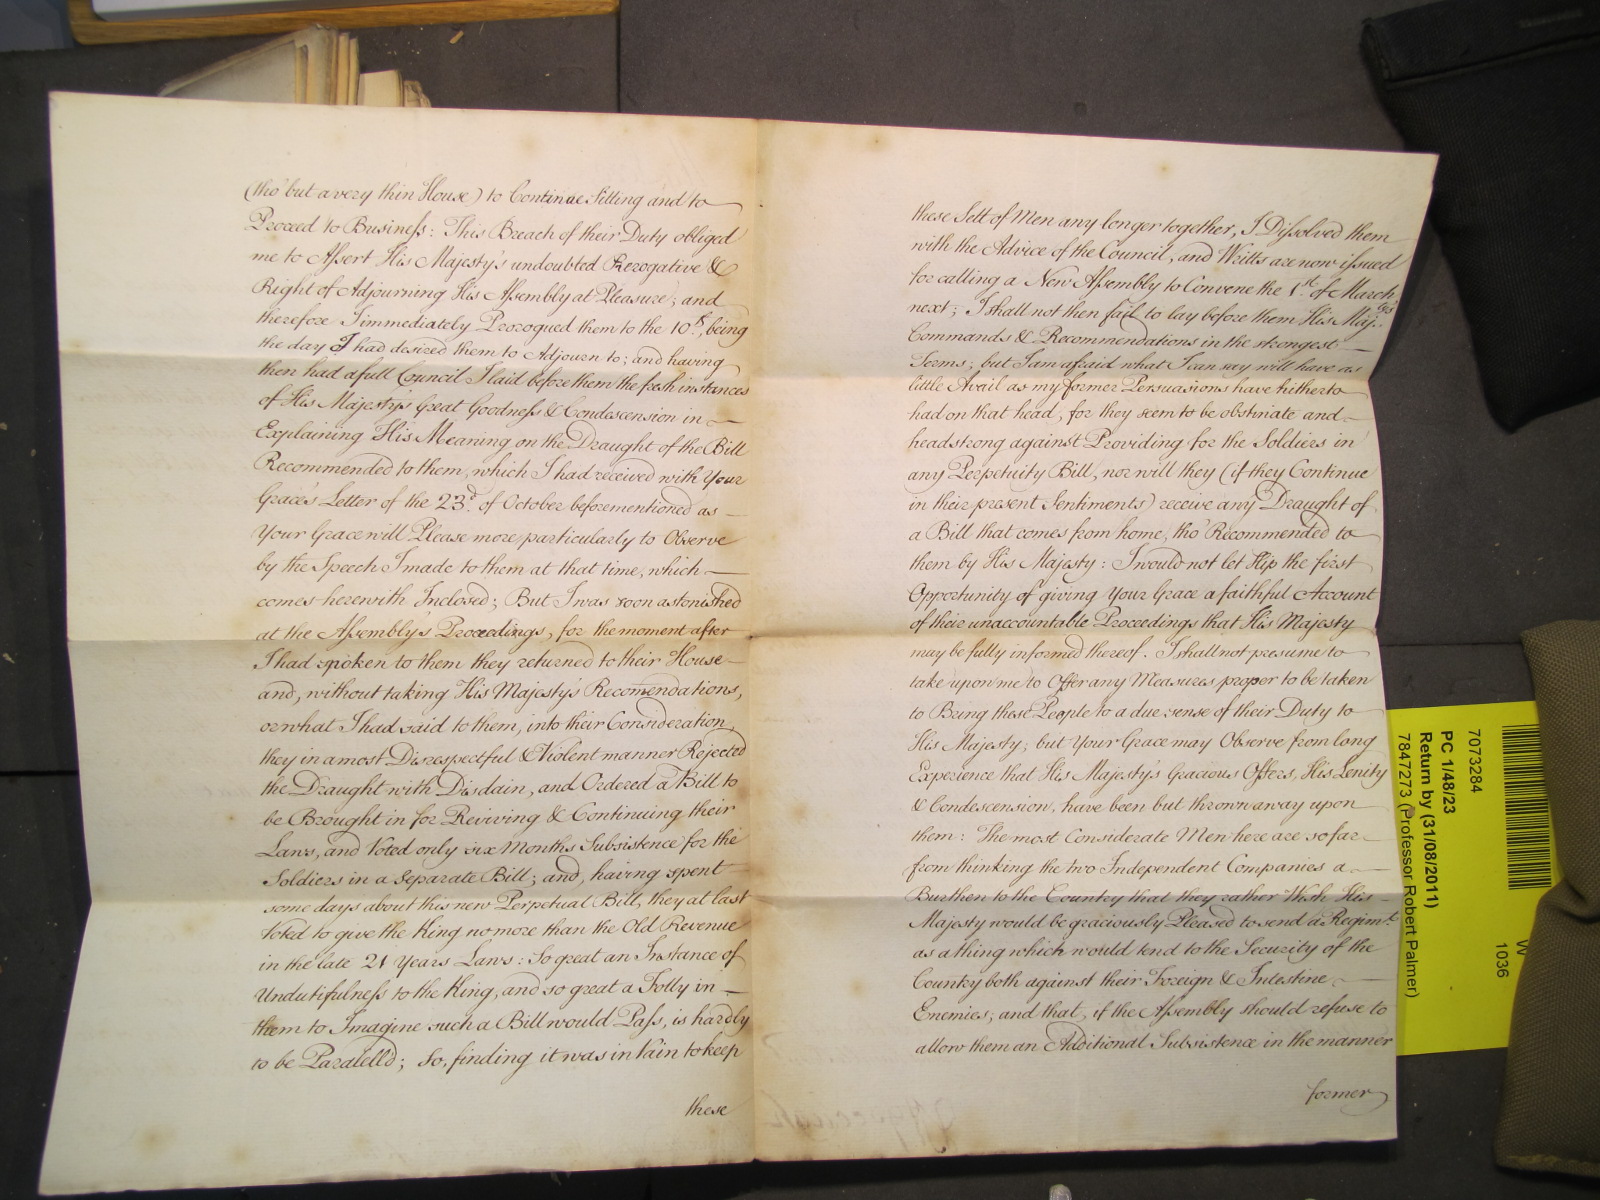 (tho' but a very thin House) to Continue Sitting and to
Proceed to Business: This Breach of their Duty obliged
me to Assert His Majesty's undoubted Prerogative &
Right of Adjourning His Assembly at Pleasure; and
therefore I immediately Prorogued them to the 10th, being
the day I had desired them to Adjourn to; and having
then had a full Council I laid before them the fresh instances
of His Majesty's Great Goodness & Condescension in
Explaining His Meaning on the Draught of the Bill
Recommended to them, which I had received with Your
Grace's Letter of the 23d. of October beforementioned as
Your Grace will Please more particularly to Observe
by the Speech I made to them at that time, which
comes herewith Inclosed; But I was soon astonished
at the Assembly's Proceedings, for the moment after
I had spoken to them they returned to their House
and, without taking His Majesty's Recomendations,
or what I had said to them, into their Consideration,
they in a most Disrespectful & Violent manner Rejected
the Draught with Disdain, and Ordered a Bill to
be Brought in for Reviving & Continuing their
Laws, and Voted only six Months Subsistence for the
Soldiers in a Separate Bill; and, having spent
some days about this new Perpetual Bill, they at last
Voted to give the King no more than the Old Revenue
in the late 21 Years Laws: So great an Instance of
Undutifulness to the King, and so great a Folly in
them to Imagine such a Bill would Pass, is hardly
to be Paralell'd; So, finding it was in Vain to keep
these
these Sett of Men any longer together, I Dissolved them
with the Advice of the Council, and Writts are now issued
for calling a New Assembly to Convene the 1st. of March
next; I shall not then fail to lay before them His Maj:ty's
Commands & Recommendations in the strongest
Terms; but I am afraid what I can say will have as
little Avail as my former Persuasions have hitherto
had on that head, for they seem to be obstinate and
headstrong against Providing for the Soldiers in
any Perpetuity Bill, nor will they (if they Continue
in their present Sentiments) receive any Draught of
a Bill that comes from home, tho' Recommended to
them by His Majesty: I would not let slip the first
Opportunity of giving Your Grace a faithful Account
of their unaccountable Proceedings that His Majesty
may be fully informed thereof. I shall not presume to
take upon me to Offer any Measures proper to be taken
to Bring these People to a due sense of their Duty to
His Majesty; but Your Grace may Observe from long
Experience that His Majesty's Gracious Offers, His Lenity
& Condescension, have been but thrown away upon
them: The most Considerate Men here are so far
from thinking the two Independent Companies a
Burthen to the Country that they rather Wish His
Majesty would be graciously Pleased to send a Regimt.
as a thing which would tend to the Security of the
Country both against their Foreign & Intestine
Enemies; and that, if the Assembly should refuse to
allow them an Additional Subsistence in the manner
former
7073284
PC 1/48/23
Return by (31/08/2011)
7847273 (Professor Robert Palmer)
W
1036